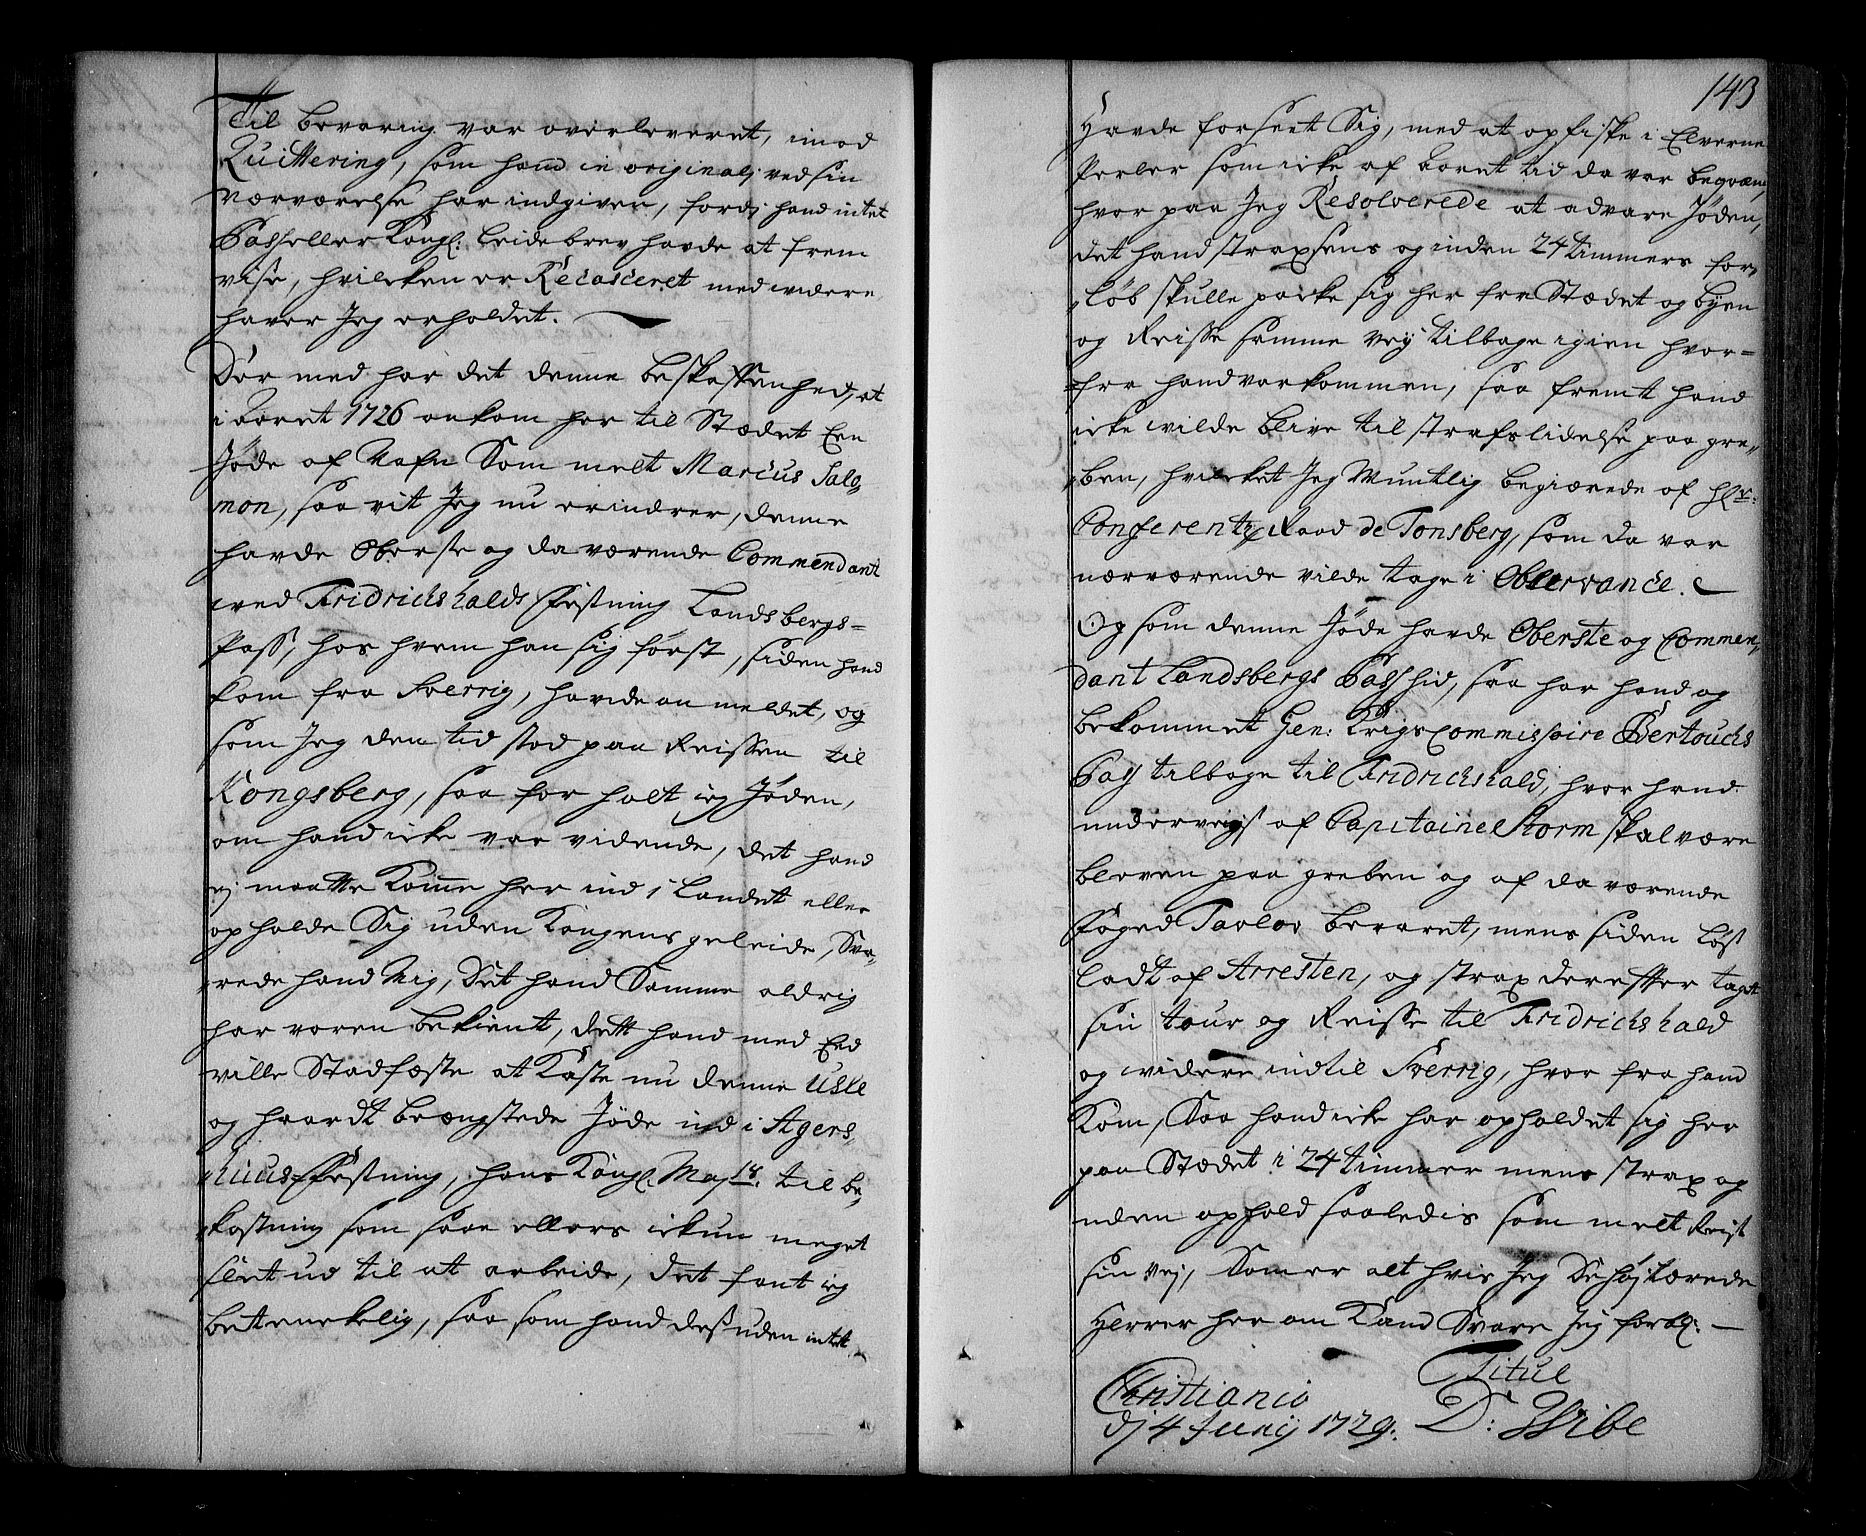 Til bevaring var overleveret, imod
Quittering, som hand in originalj ved sin
nærværelse har indgiven, fordj hand intet
Pass eller Kongl: leide brev havde at frem
vise, hvilcken er Recasceret med widere
haver Jeg erholdet.
Der med har det denne beskaffenhed, at
i Aaret 1726 ankom her til Stædet Een
Jøde af Nafn Som melt Marcus Salo-
mon, saa vit Jeg nu erindrer, denne
havde Oberste og da værende Commendant
wed Fridrichshalds Festning Landsbergs=
Pass, hos hvem han sig først, siden hand
kom fra Sverrig, havde an meldet, og
som Jeg den tid stod paa Reissen til
Kongsberg, saa for holt ieg Jøden,
om hand icke var vidende, det hand
ej maatte Komme her ind i Landet eller
op holde Sig uden Kongens geleide, Sva-
rede hand Mig, Det hand Samme aldrig
har voren bekient, dett hand med Eed
ville Stadfæste at Kaste nu denne Usle
og haardt beængstede Jøde ind i Agers-
huus Festning, hans Kongl. Maj.ts til be-
kostning som saae ellers ickun meget
slet ud til at arbeide, det fant ieg
betenckelig, saa som hand dessuden intet
143
Havde forseet Sig, med at opfiske i Elverne
Perler som icke af Aaret tid da var beqvæm,
hvor paa Jeg Resolverede at advare Jøden,
det hand straxsens og inden 24 timmers for-
løb skulle packe sig her fra Stædet og byen
og Reisse samme vej tilbage igien hvor=
fra hand var kommen, saa fremt hand
icke wilde blive til strafs lidelse paa gre-
ben, hvilcket Jeg Muntlig begiærede af Hr:
Conferentz Raad de Tonsberg, som da var
nærværende vilde tage i Observance.
Og som denne Jøde havde Oberste og Commen-
dant Landsbergs Pass hid, saa har hand og
bekommet Gen: Krigs Commissaire Bertouchs
Pass tilbage til Fridrichshald, hvor hand
undervejs af Capitaine Storm skal være
bleven paa greben og af da værende
Foged Tavlov bevaret, mens siden løst
ladt af Arresten, og strax dereffter taget
sin tour og Reisse til Fridrichshald
og widere ind til Sverrig, hvor fra hand
Kom, Saa hand icke har opholdet sig her
paa Stædet i 24 timmer mens strax og
uden ophold saaledis som melt Reist
sin vej, Som er alt hvis Jeg De Højlærede
Herrer her om Kand Svare Jeg forbl:
Titul
Christiania
dj 4 Junij 1729. D: Wibe